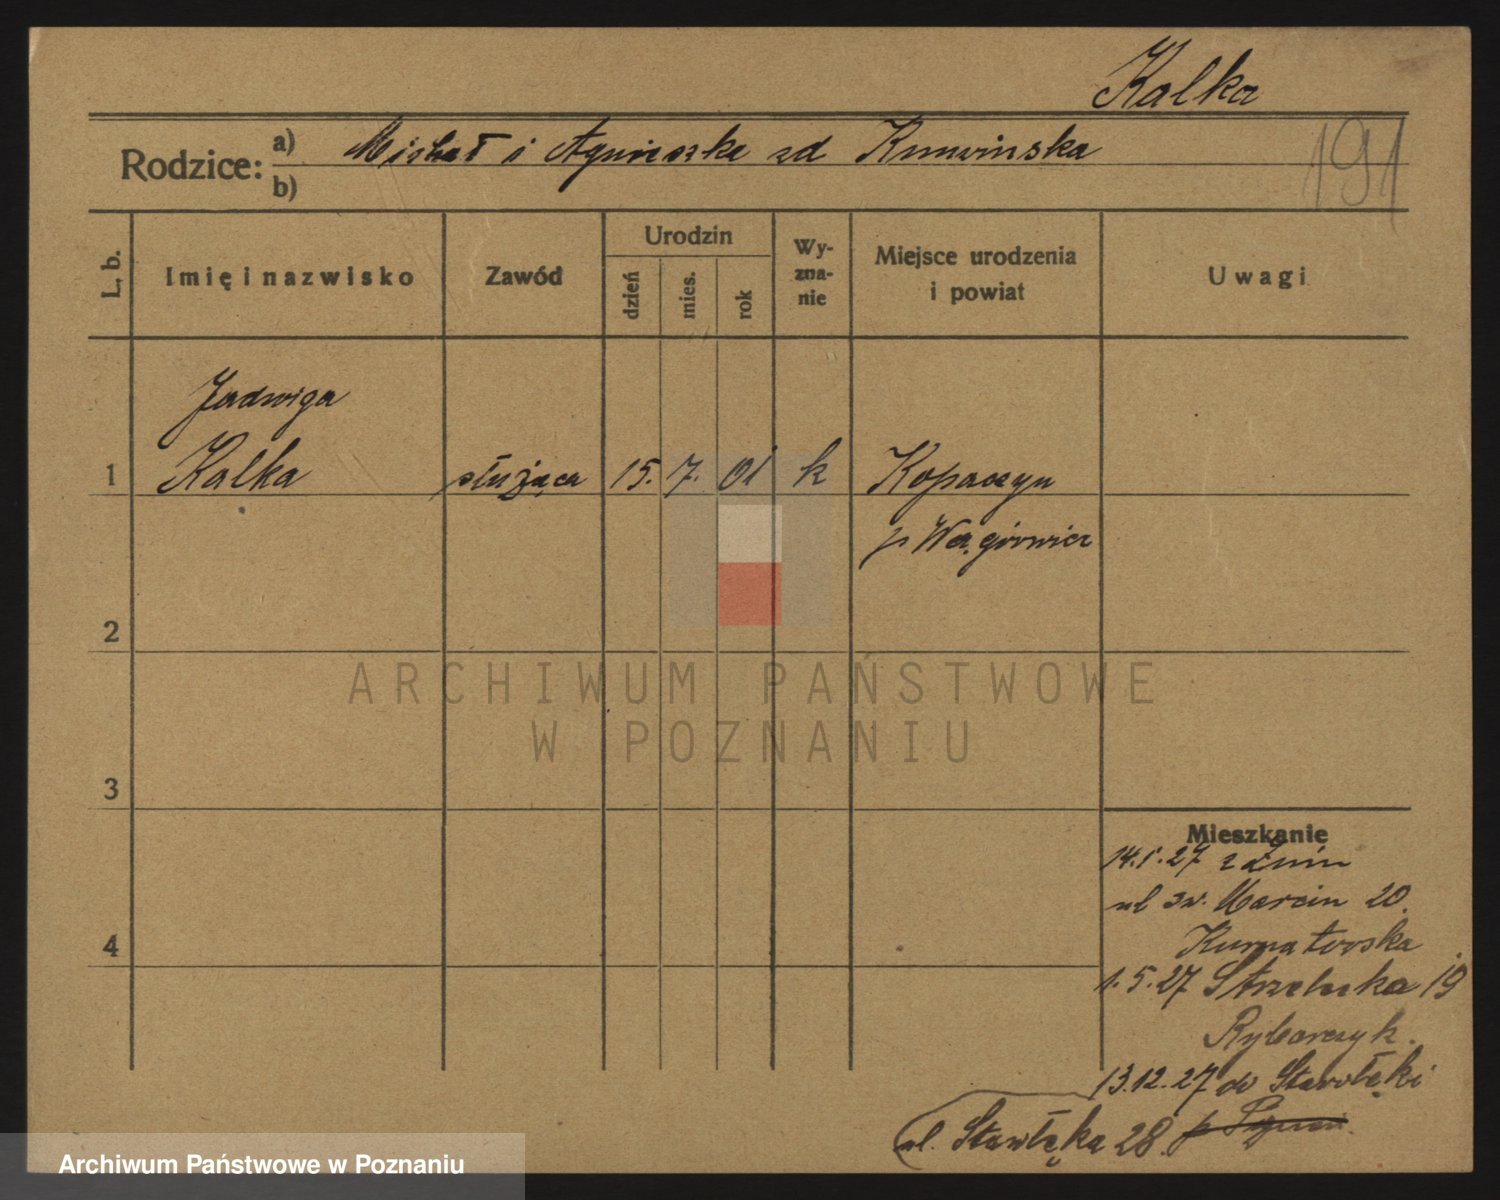 Kalka
Rodzice: a) Michał i Agnieszka zd
b)
191
L. b.
Imię i nazwisko
Zawód
Urodzin
dzień
mies.
rok
Wy-
zna-
nie
Miejsce urodzenia
i powiat
Uwagi
Jadwiga
1 Kalka służąca 15. 7. 01 k Kopaszyn
p Wągrowiec
2
3
4
ARCHIWUM PAŃSTWOWE
W POZNANIU
Mieszkanie
14.1.27 z Żnin
ul św. Marcin 20.
Kurnatowska
1.5.27 Strzelecka 19
Rybarczyk.
13.12.27 do Starołęki
ul. Starołęka 28.
Archiwum Państwowe w Poznaniu